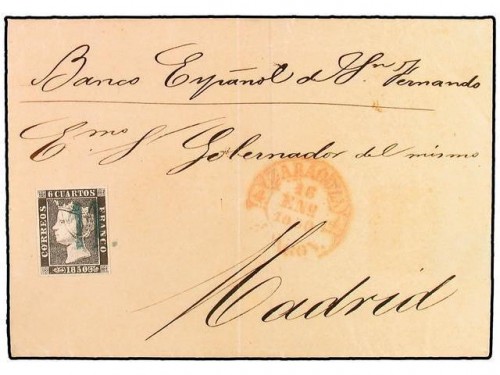 Banco Español de Sn. Fernando
Emo S Gobernador del mismo
6 CUARTOS
CORREOS
FRANCO
1850
ZARAGOZA
16
ENE
Madrid